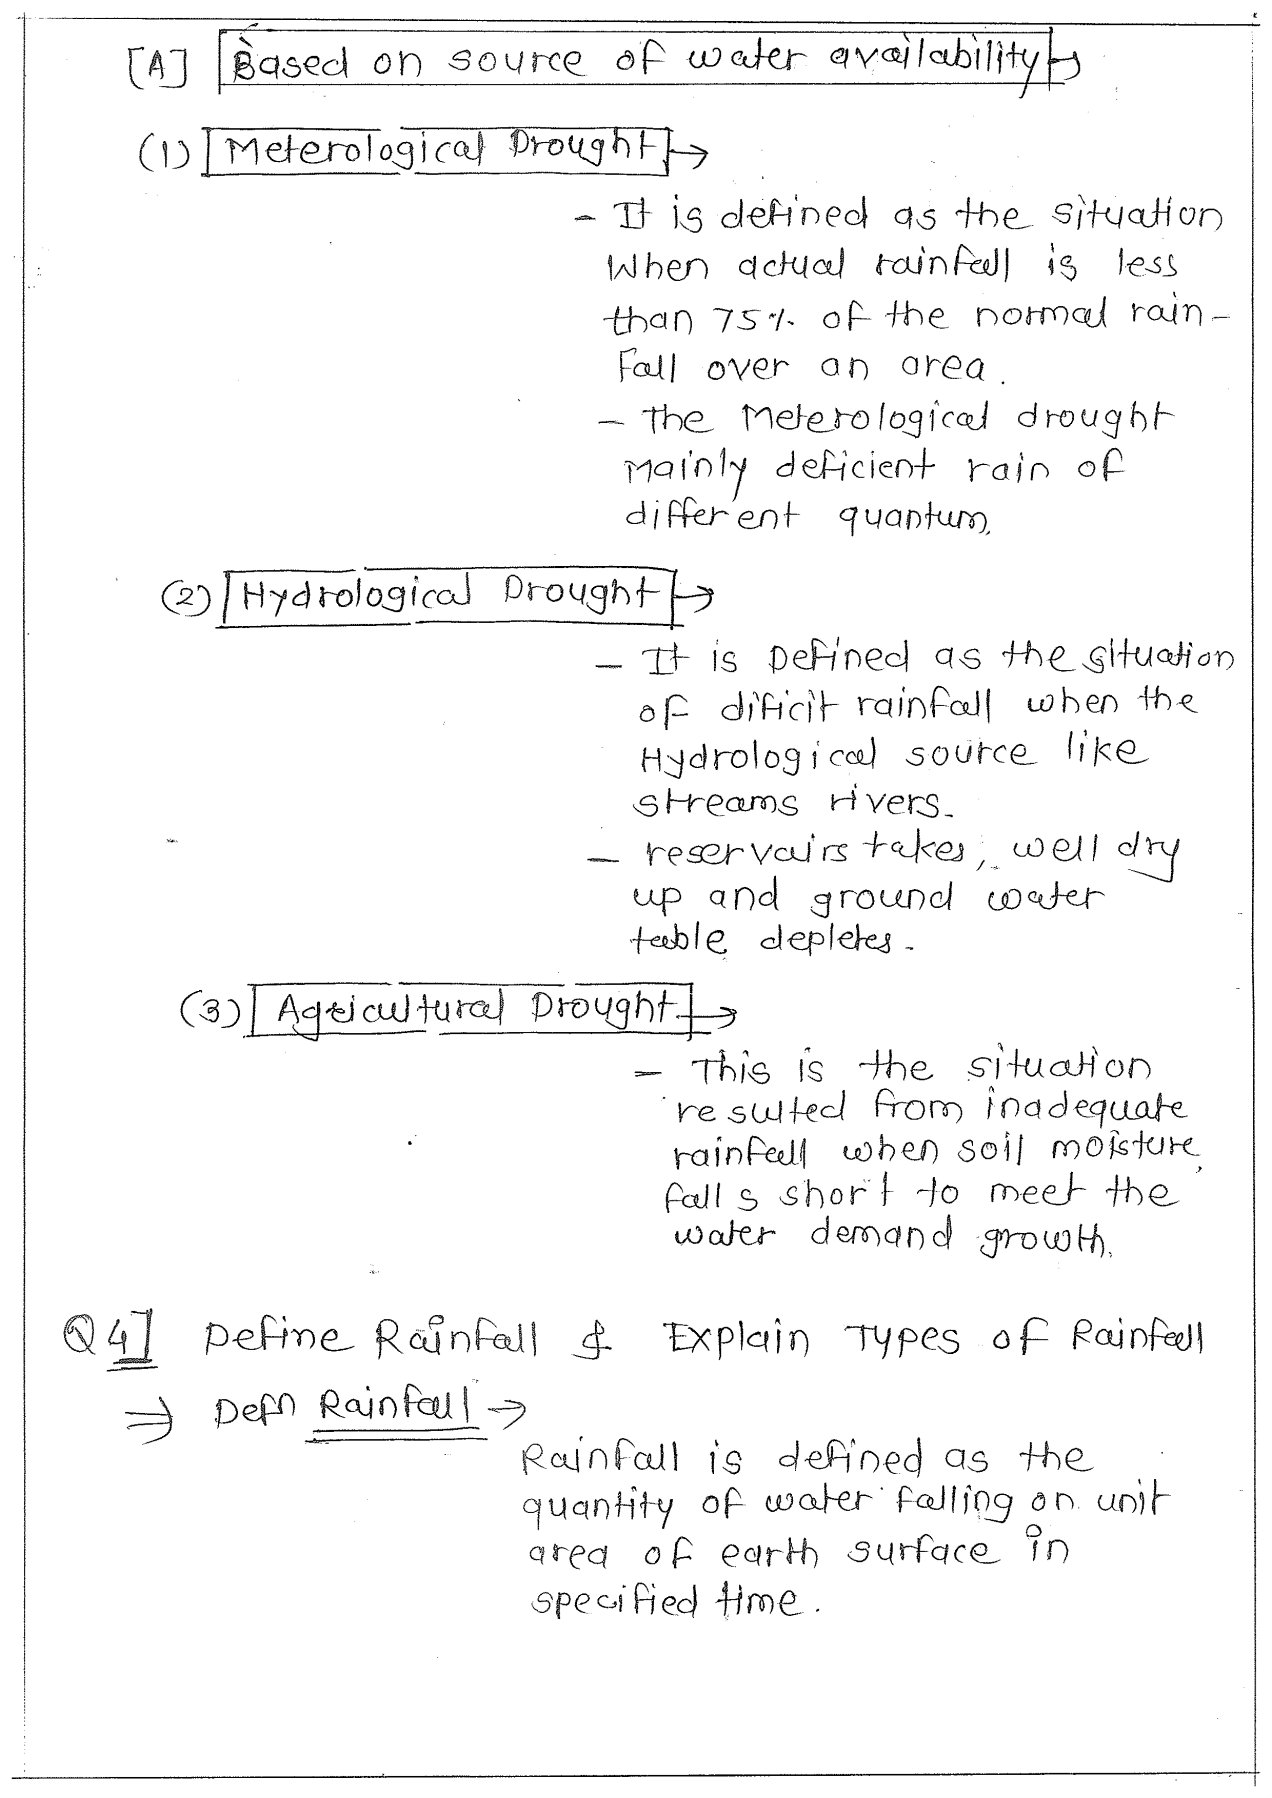 [A] Based on source of water availability →
(1) Meterological Drought →
- It is defined as the situation
When actual rainfall is less
than 75% of the normal rain-
fall over an area.
- The Meterological drought
Mainly deficient rain of
different quantum.
(2) Hydrological Drought →
- It is Defined as the situation
of dificit rainfall when the
Hydrological source like
streams rivers.
- reservairs takes, well dry
up and ground water
table depletes.
(3) Agricultural Drought →
- This is the situation
resulted from inadequate
rainfall when soil moisture
falls short to meet the
water demand growth.
Q4] Define Rainfall & Explain Types of Rainfall
⇒ Defn Rainfall →
Rainfall is defined as the
quantity of water falling on unit
area of earth surface in
specified time.